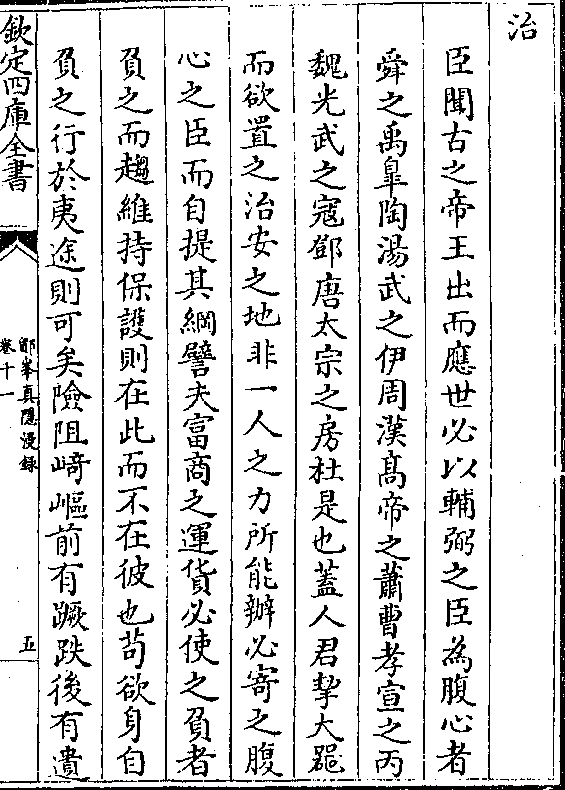 治
臣聞古之帝王出而應世必以輔弼之臣為腹心者
舜之禹臯陶湯武之伊周漢髙帝之蕭曹孝宣之丙
魏光武之寇鄧唐太宗之房杜是也葢人君挈大噐
而欲置之治安之地非一人之力所能辦必寄之腹
心之臣而自提其綱譬夫富商之運貨必使之負者
負之而趨維持保護則在此而不在彼也茍欲身自
負之行於夷途則可矣險阻﨑嶇前有蹶跌後有遺
欽定四庫全書
鄮峯真隱漫録
卷十一
五